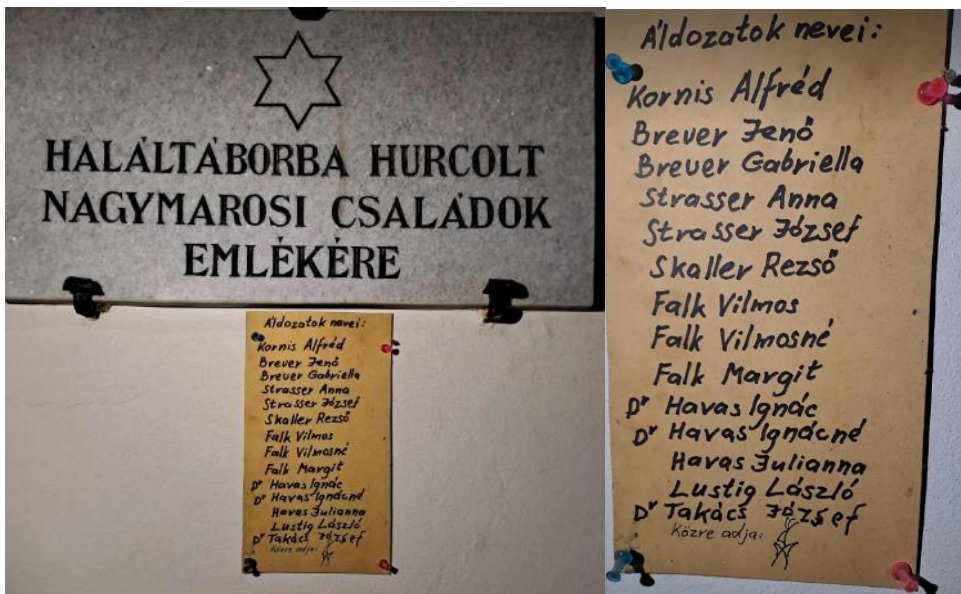 HALÁLTÁBORBA HURCOLT
NAGYMAROSI CSALÁDOK
EMLÉKÉRE
Áldozatok nevei:
Kornis Alfréd
Brever Jenő
Brever Gabriella
Strasser Anna
Strasser József
Skaller Rezső
Falk Vilmos
Falk Vilmosné
Falk Margit
Dr Havas Ignác
Dr Havas Ignácné
Havas Julianna
Lustig László
Dr Takács József
Közre adja:
Áldozatok nevei:
Kornis Alfréd
Brever Jenő
Brever Gabriella
Strasser Anna
Strasser József
Skaller Rezső
Falk Vilmos
Falk Vilmosné
Falk Margit
Dr Havas Ignác
Dr Havas Ignácné
Havas Julianna
Lustig László
Dr Takács József
Közre adja: